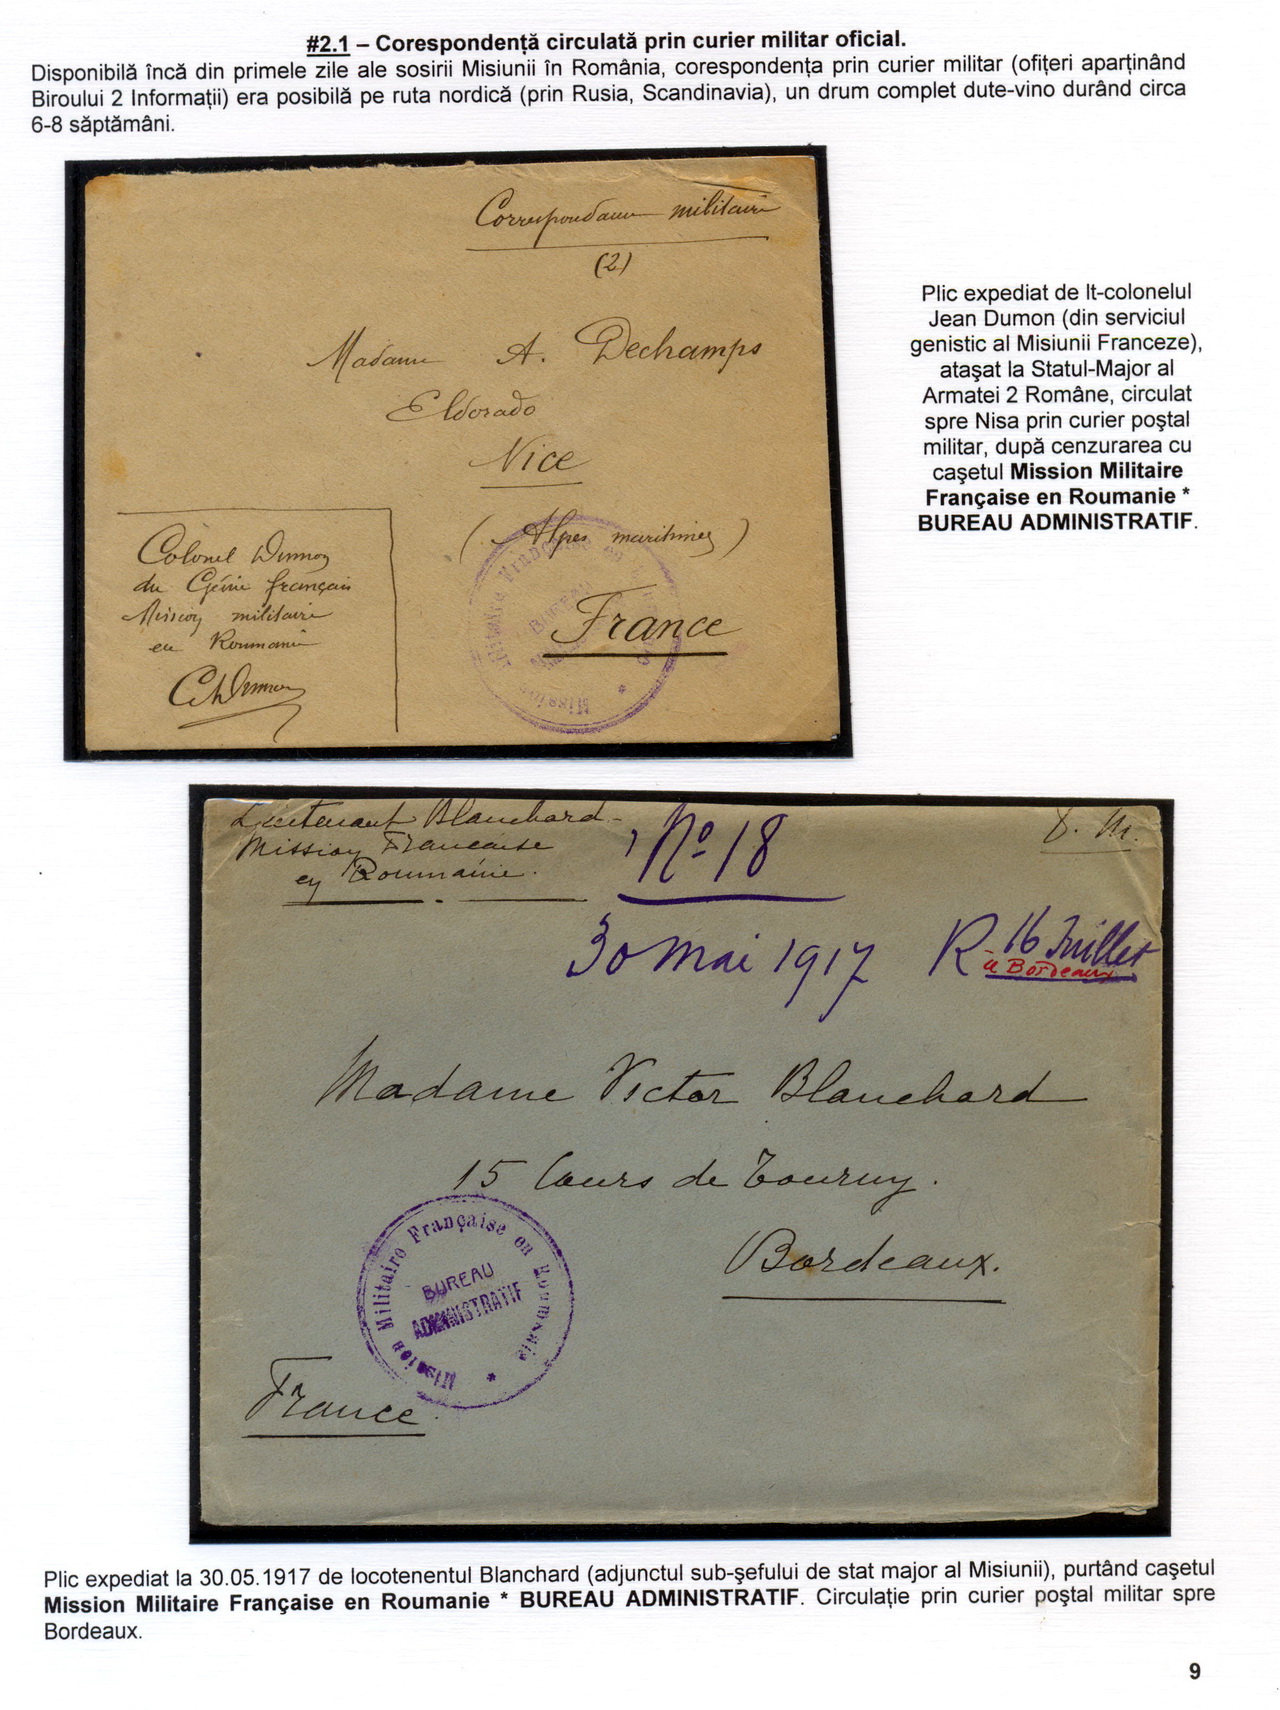 #2.1 – Corespondenţă circulată prin curier militar oficial.
Disponibilă încă din primele zile ale sosirii Misiunii în România, corespondenţa prin curier militar (ofiţeri aparţinând
Biroului 2 Informaţii) era posibilă pe ruta nordică (prin Rusia, Scandinavia), un drum complet dute-vino durând circa
6-8 săptămâni.
Correspondance militaire
(2)
Madame A. Dechamps
Eldorado
Nice
(Alpes maritimes)
France
Colonel Dumon
du Génie français
Mission militaire
en Roumanie
Dumon
Mission Militaire Française en Roumanie *
BUREAU
Plic expediat de lt-colonelul
Jean Dumon (din serviciul
genistic al Misiunii Franceze),
ataşat la Statul-Major al
Armatei 2 Române, circulat
spre Nisa prin curier poştal
militar, după cenzurarea cu
caşetul Mission Militaire
Française en Roumanie *
BUREAU ADMINISTRATIF.
Lieutenant Blanchard -
Mission Francaise
en Roumanie.
No 18
30 Mai 1917
R. 16 Juillet
à Bordeaux
Madame Victor Blanchard
15 Cours de Tourny.
Bordeaux.
Mission Militaire Française en Roumanie *
BUREAU
ADMINISTRATIF
France.
Plic expediat la 30.05.1917 de locotenentul Blanchard (adjunctul sub-şefului de stat major al Misiunii), purtând caşetul
Mission Militaire Française en Roumanie * BUREAU ADMINISTRATIF. Circulaţie prin curier poştal militar spre
Bordeaux.
9